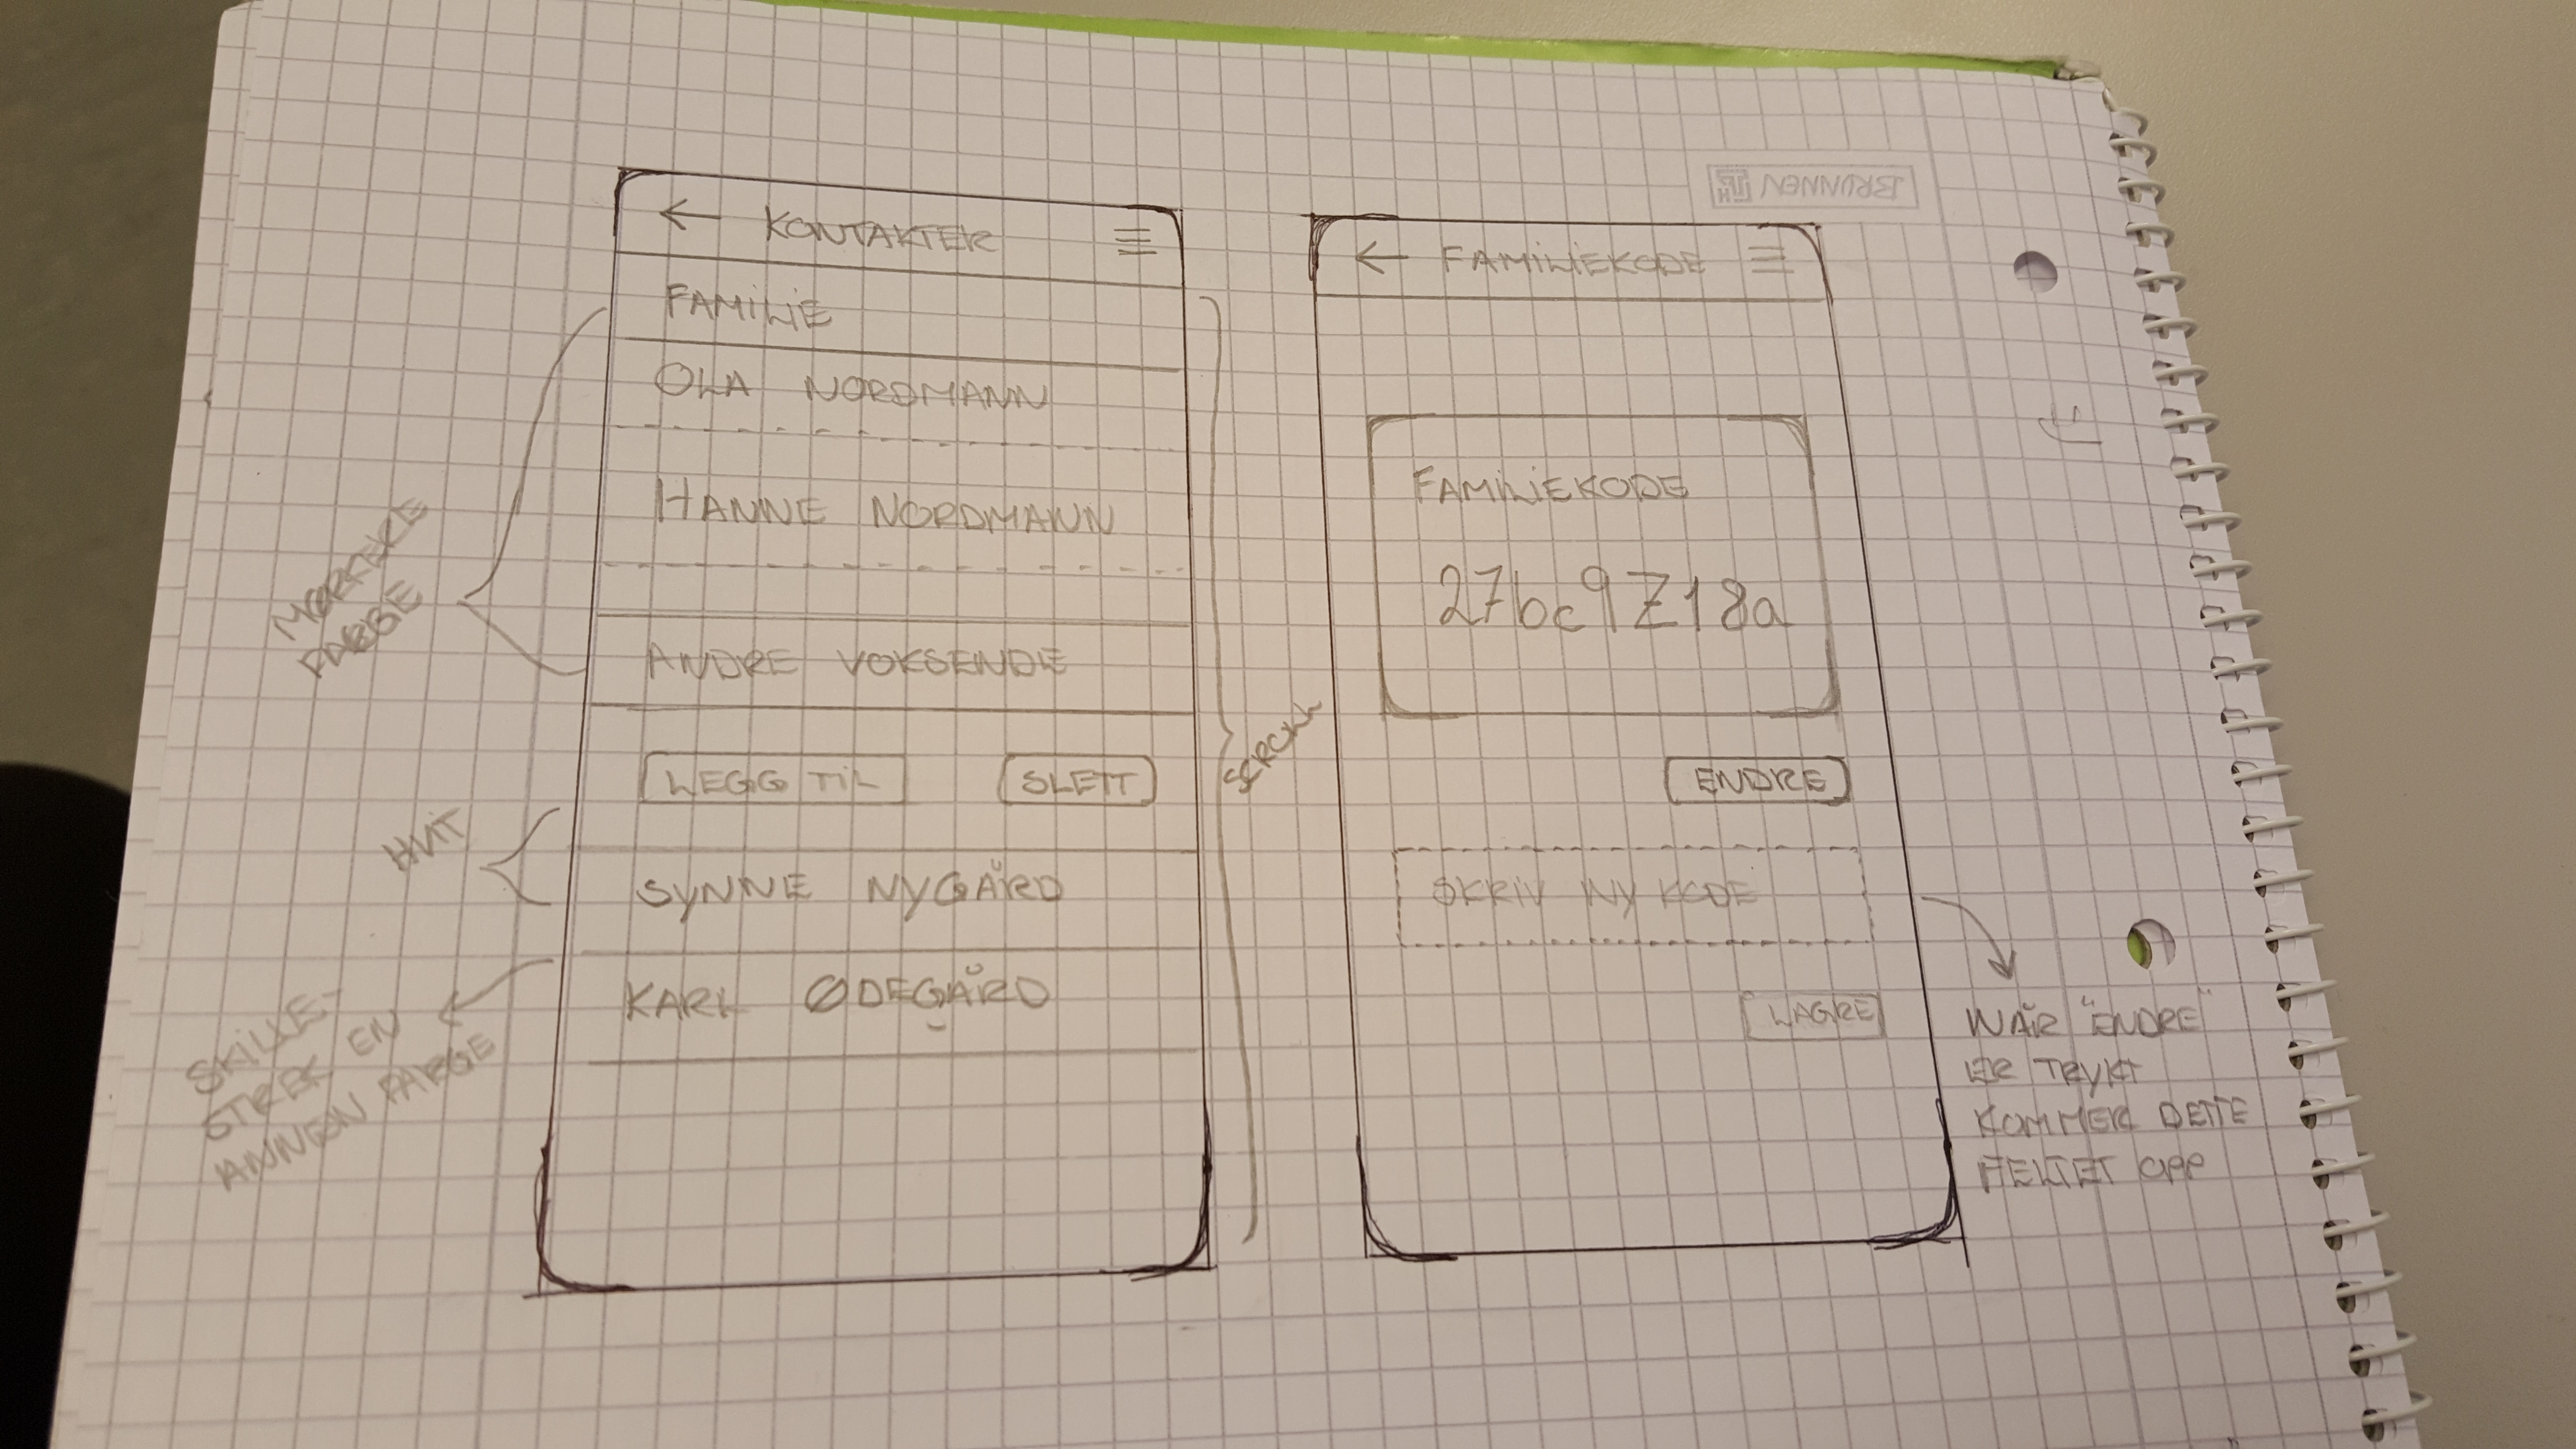 ← KONTAKTER ≡
FAMILIE
OLA NORDMANN
HANNE NORDMANN
ANDRE VOKSENDE
LEGG TIL
SLETT
SYNNE NYGÅRD
KARL ØDEGÅRD
MØRKERE
FARGE
HVIT
SKILLE-
STREK EN
ANNEN FARGE
SCROLL
← FAMILIEKODE ≡
FAMILIEKODE
27bc9Z18a
ENDRE
SKRIV NY KODE
LAGRE
NÅR "ENDRE"
ER TRYKT
KOMMER DETTE
FELTET OPP
BRUNNEN